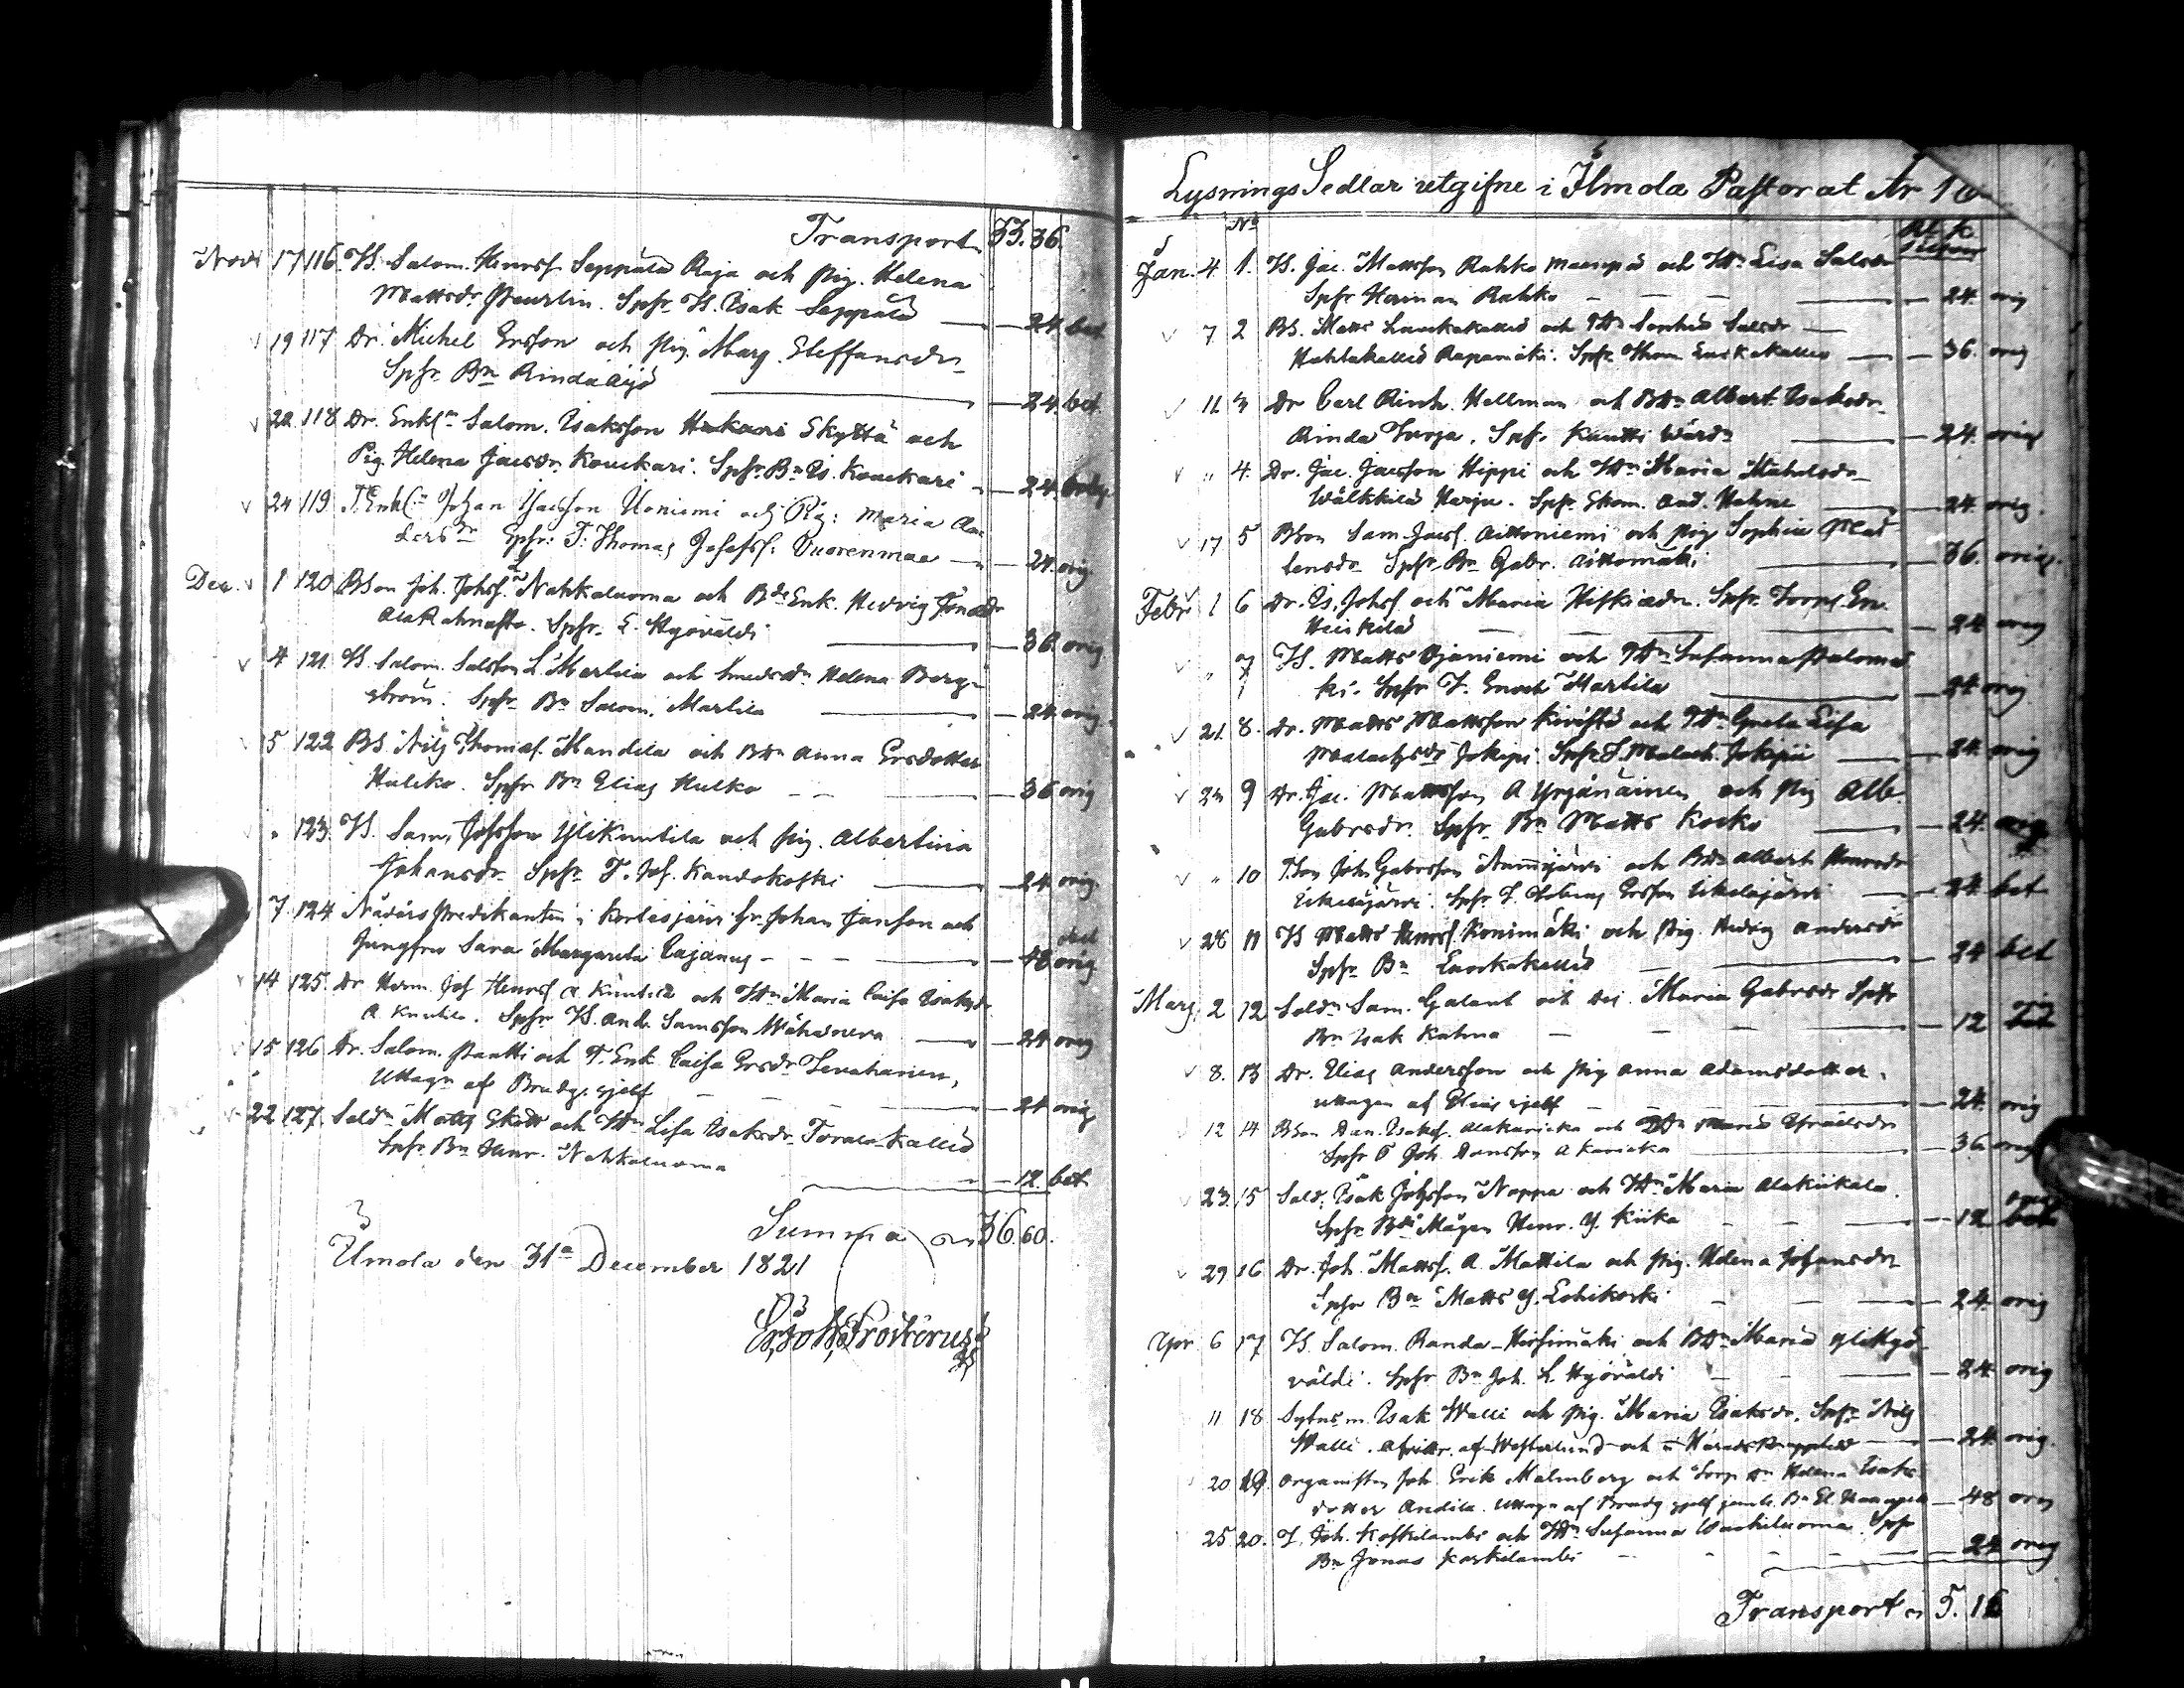 Transport 33.36.
Nov. 17 116. TS. Salom. Henrsf. Seppälä Raja och pig. Helena
Mattsdr Paurlin. Spfr TS. Isak Seppälä 24. bet
19 117 Dr. Michel Ersson och pig. Marg. Steffansdr
Spfr. Bn Rinda äijö 24. bet
22 118 Dr. Enkl. Salom. Isaksson Skyttä och
Pig. Helena Jacsdr Koukari. Spfr. Bn Is. Koukari 24.
24 119 T. Enkl. Johan Jacsson Uoniemi och Pig: Maria An-
dersdr Spfr: T: Thomas Josefsf. Vuorenmaa 24. orig
Dec. 1 120 BSon Joh. Johsf. Nahkaluoma och Bde Enk. Hedvig Jonædr
Ala Rahnasto. Spfr. L. Hyövälді 36. orig.
4 121. TS. Salom. Salsson L Martila och Smedsdr Helena Berg-
ström. Spfr Bn Salom. Martila 24. orig.
5 122 BS. Nils Thomasf. Mandila och BDr Anna Ersdotter
Hulko. Spfr Bn Elias Hulko 36 orig
" 123. TS. Sam. Johsson Yliknutila och pig. Albertina
Johansdr Spfr T. Jos. Kandokoski 24. orig.
7 124. Nådårs Predikanten i Kortesjärvi Hr. Johan Jansson och
Jungfru Sara Margareta Cajanus 48 orig
14 125. Dr. Herm. Jos Henrsf A Knutila och TDr Maria Caisa Isaksdr
A Knutila. Spfr TS. And. Samsson Wähänerva 24 orig
15 126 Dr. Salom. Pantti och T. Enk. Caisa Ersdr Levahanen,
Uttagn af Brudg. sjelf 24 orig
22 127. Soldn Matts Skott och TDr Lisa Isaksdr Torala-Kallio
Spfr. Bn Henr. Nahkaluoma 12. bet
Summa 36.60.
Ilmola den 31a December 1821
LysningsSedlar utgifne i Ilmola Pastorat År
No
Jan. 4 1. TS. Jac. Mattsson Rahko och TDr Lisa Salsdr
Spfr Herman Rahko 24. orig
7 2 BS. Matts Luukakallio och TDr Sophia Salsdr
Hahlakallio Rapamäki. Spfr. Thom Luukakallio 36. orig
11 3 Dr Carl Hellman och BDr Albert. Isaksdr
Rinda Sorja. Spfr. Knutti Wärd 24. orig
" 4. Dr. Jac. Jacsson Hippi och TDr Maria Michelsdr
Wälkkilä Harju. Spfr. And. Hahne 24. orig.
17 5 BSon Sam. Jacsf. Aittoniemi och pig Sophia Mag
lensdr Spfr. Bn Gabr. Aittomäki 36. orig.
Febr 1 6 Dr. Is. Johsf. och Maria Hiskiædr. Spfr.
Heiskilä 24 orig
" 7 TS. Matts Ojaniemi och TDr Susanna Palomä
ki. Spfr T. Enoch Martila 24 orig
21. 8. Dr. Matts Mattsson Kivistö och TDr Greta Lisa
Malachsdr Jokipi. Spfr S. Malach. Jokipii 24. orig
23 9 Dr. Jac. Mattsson A Yrjänäinen och pig Alb.
Gabrsdr. Spfr Bn Matts Kocko 24. orig
" 10 TSon Joh. Gabrsson Nurmijärvi och BDr Albert. Henrsdr
Spfr T. Tobias Ersson 24. bet
28 11 TS Matts Henrsf. Konimäki och pig. Hedvig Andersdr
Spfr Bn Luukakallio 24 bet
Mars. 2 12 Soldn Sam. Galant och Maria Gabrsdr Spfr
Bn Isak Kahma 12
8. 13 Dr. Elias Andersson och pig Anna Adamsdotter.
uttagen af Elias sjelf 24. orig
12 14 BSon Dan. Isaksf. Alakaricka och BDr Maria Israëlsdr
Spfr B Joh. Dansson A Karicka 36. orig
23. 15 Sold. Isak Johsson Noppa och TDr Maria Alakiikala.
Spfr Bde Mågen Henr. Y. Kiika 12
29 16 Dr. Joh. Mattsf. A. Mattila och pig. Helena Johansdr
Spfr Bn Matts Y. Lohikoski 24. orig
Apr 6 17 TS. Salom. Randa-Hirsimäki och BDr Maria YliHyö-
väldi. Spfr Bn Joh. L. Hyöväldi 24. orig
11 18. Sytnsm. Isak Walli och pig. Maria Isaksdr. Spfr Nils
Walli. 24. orig.
20 19 Organisten Joh. Erik Malmberg och Helena Isaks
dotter Andila. Uttagn af Brudg sjelf jemte Bn 48 orig
25 20. T. Joh. Koskilambi och TDr Susanna Spfr
Bn Jonas Koskilambi 24 orig
Transport 5. 16